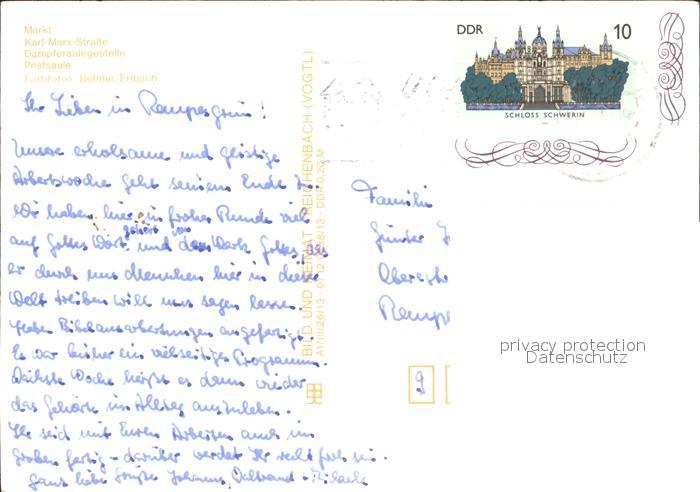 Markt
Karl-Marx-Straße
Dampferanlegestelle
Postsäule
Farbfotos: Böhme, Erlbach
Ihr Lieben in Rempesgrün!
Unsere erholsame und geistige
Arbeitswoche geht seinem Ende z
Wir haben hier in froher Runde viel
auf Gottes Wort gehört und das Werk Gottes, das
er durch uns Menschen hier in diese
Welt treiben will uns sagen lassen.
Haben Bibelausarbeitungen angefertigt.
Es war bisher ein vielseitiges Programm.
Nächste Woche heißt es dann wieder
das Gehörte im Alltag auszuleben.
Ihr seid mit Euren Arbeiten auch im
Groben fertig - darüber werdet Ihr recht froh sein.
Ganz liebe Grüße Johannes,
BILD UND HEIMAT REICHENBACH (VOGTL)
A1/III/26/13 DDR 0,20 M
DDR
10
SCHLOSS SCHWERIN
Familie
Günter
Rempe
9
privacy protection
Datenschutz